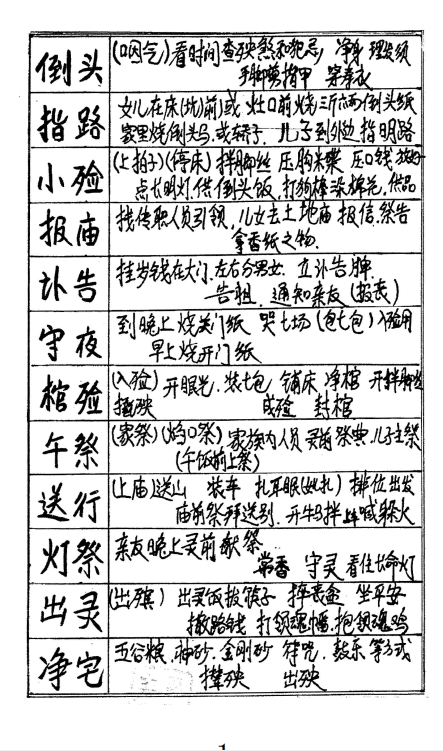 倒头 (咽气)看时间查殃煞和犯忌, 净身 理发须
手脚剪指甲 穿寿衣
指路 女儿在床(坑)前)或灶口前烧三斤六两倒头纸
家里烧倒头马.或轿子. 儿子到外边指明路
小殓 (上拍子)(停床) 绊脚丝 压口钱
点长明灯.供倒头饭,打狗棒 棉花,供品
报庙 找传职人员引领,儿女去土地庙报信.祭告
拿香纸之物.
讣告 挂岁钱在大门.左右分男女. 立讣告牌
告祖. 通知亲友(报丧)
守夜 到晚上烧关门纸 哭七场(包七包)入殓用
早上烧开门纸
棺殓 (入殓)开眼光.装七包 铺床 净棺 开绊脚丝
殃 成殓 封棺
午祭 (家祭)(焰口祭)家族内人员灵前祭典.儿子主祭
(午饭前上祭)
送行 (上庙)送山 装车 扎耳眼(女扎) 排位出发
庙前祭拜送别.开牛马绊 喊躲火
灯祭 亲友晚上灵前献祭
常香 守灵 看住长命灯
出灵 (出殡) 出灵饭拔筷子 摔丧盆 坐平安
撒路钱 打领魂幡.抱领魂鸡
净宅 五谷粮.神砂.金刚砂 符咒.鼓乐等方式
殃 出殃
1